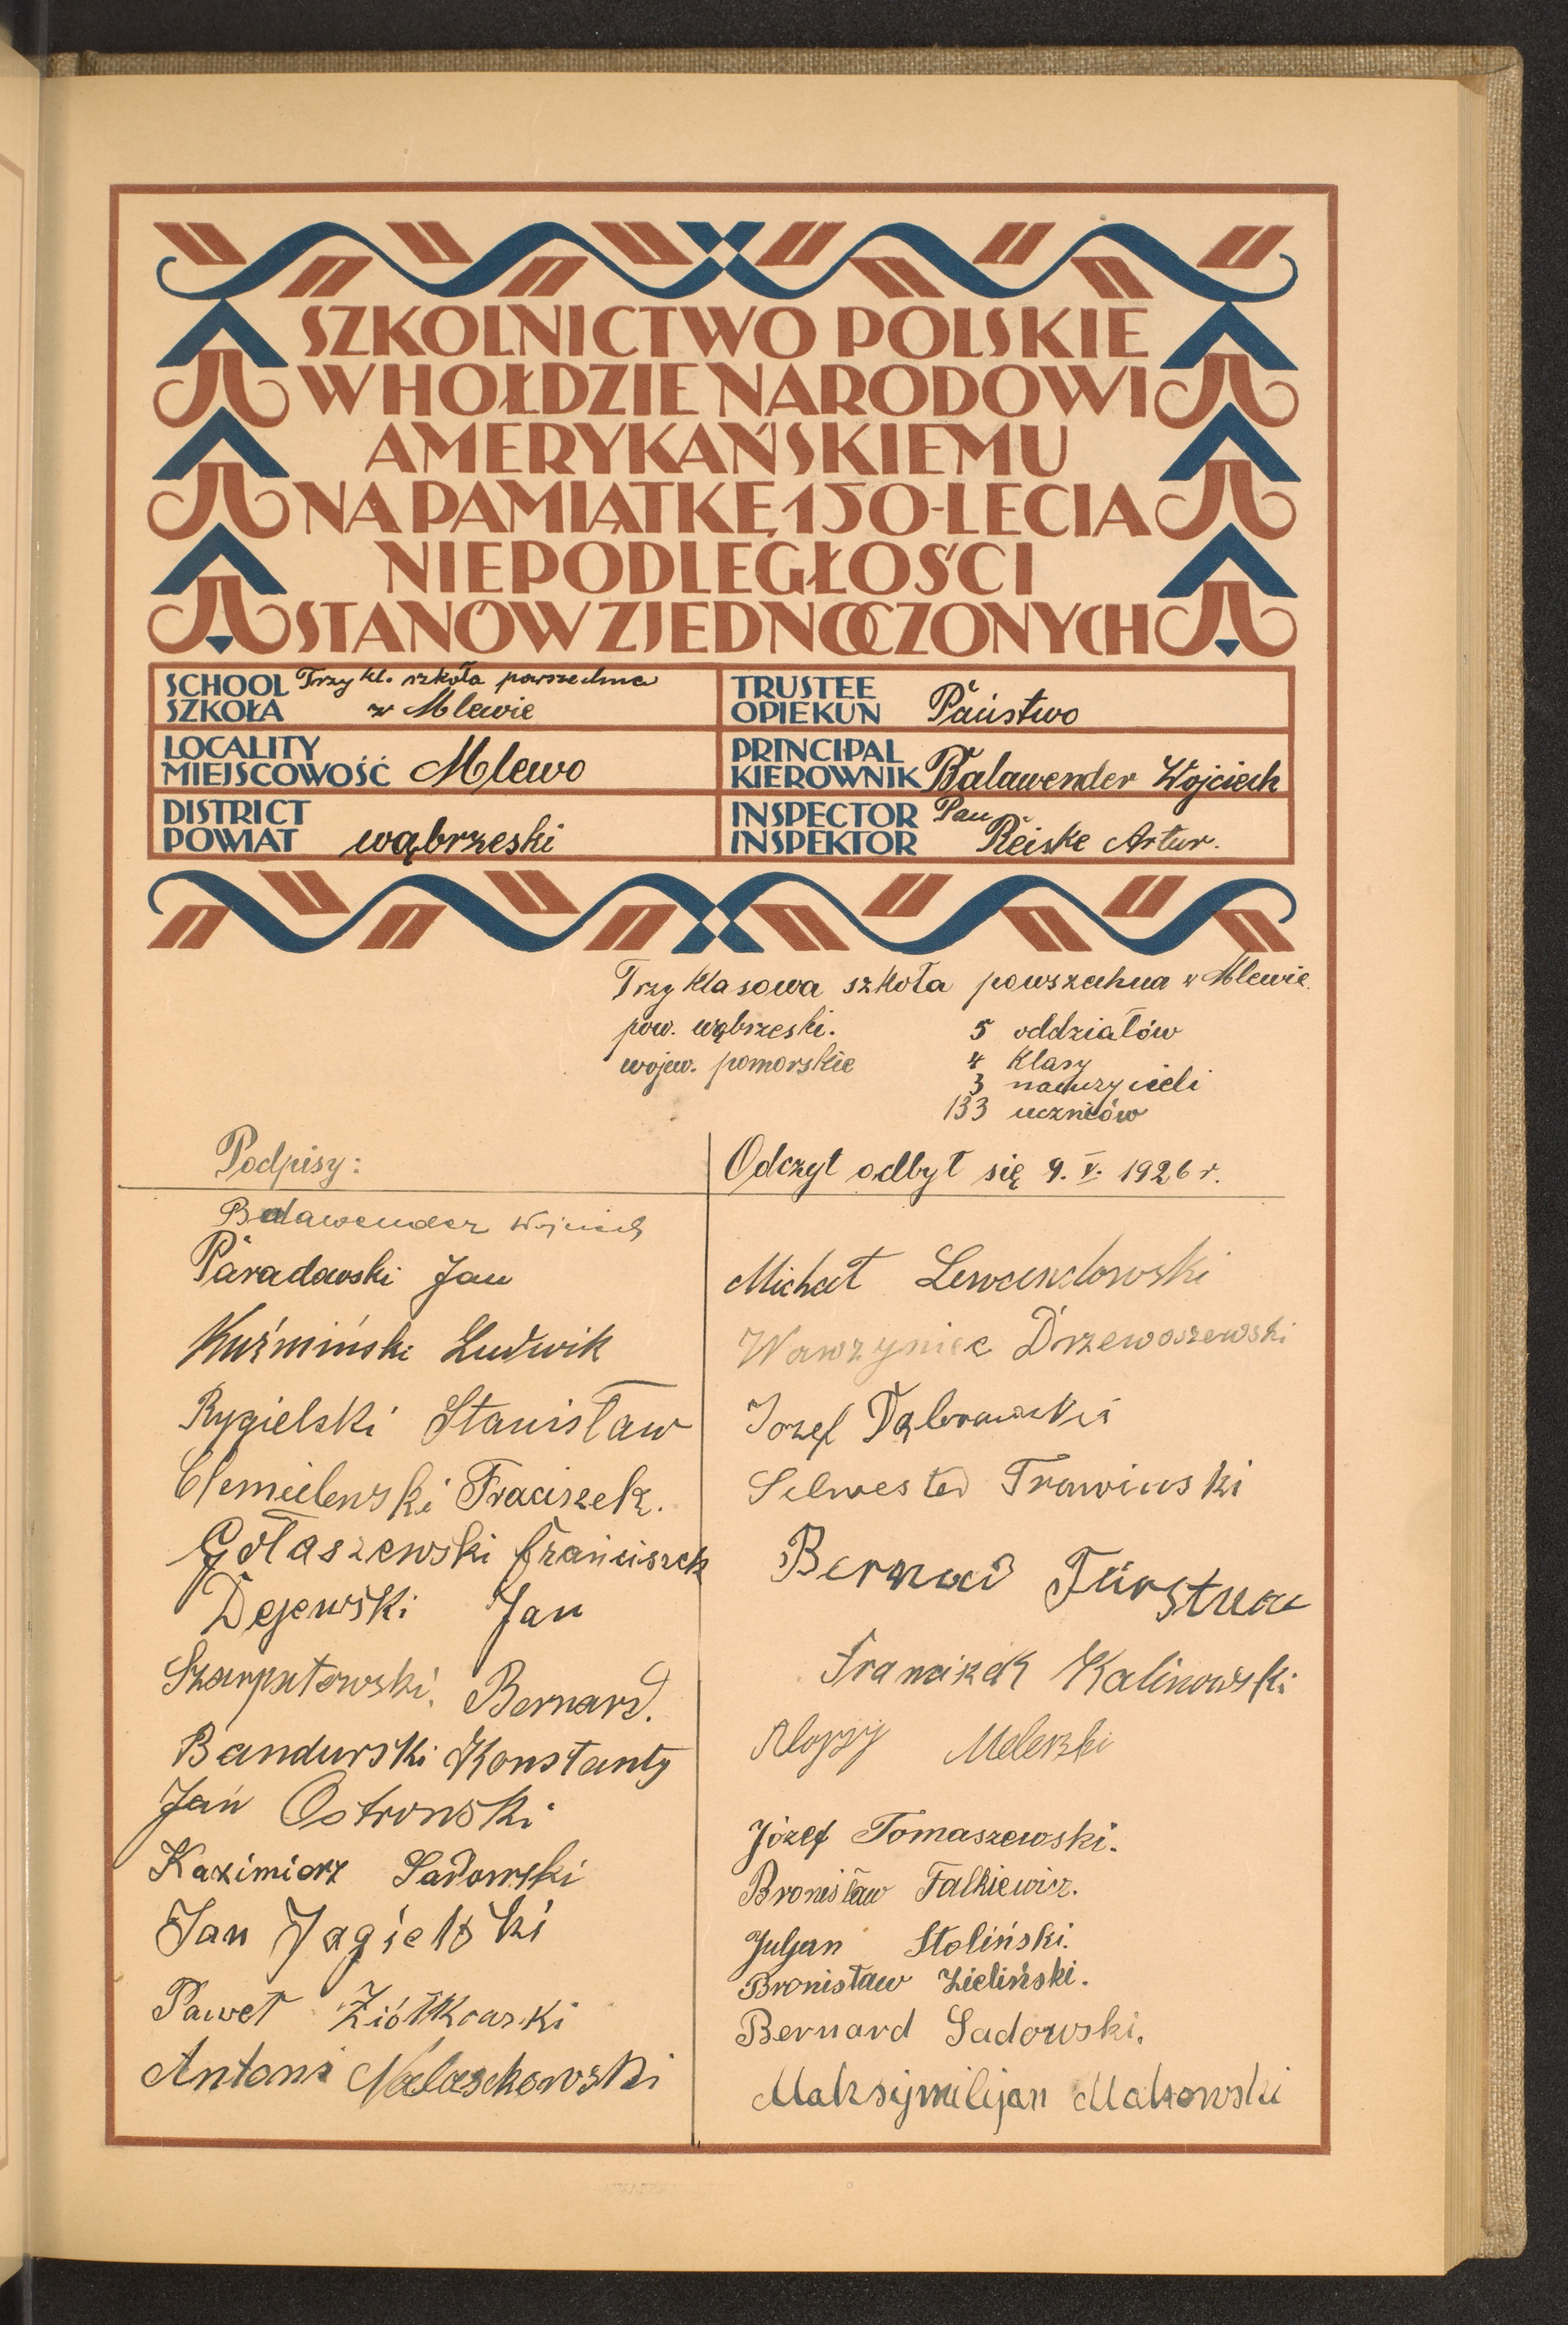 SZKOLNICTWO POLSKIE
W HOŁDZIE NARODOWI
AMERYKAŃSKIEMU
NA PAMIĄTKĘ 150-LECIA
NIEPODLEGŁOŚCI
STANÓW ZJEDNOCZONYCH
SCHOOL Trzy kl. szkoła powszechna
SZKOŁA w Mlewie
TRUSTEE
OPIEKUN Państwo
LOCALITY
MIEJSCOWOŚĆ Mlewo
PRINCIPAL
KIEROWNIK Balawender Wojciech
DISTRICT
POWIAT wąbrzeski
INSPECTOR Pan
INSPEKTOR Reiske Artur.
Trzyklasowa szkoła powszechna w Mlewie.
pow. wąbrzeski.
wojew. pomorskie
5 oddziałów
4 klasy
3 nauczycieli
133 uczniów
Podpisy:
Balawender Wojciech
Paradowski Jan
Kuźmiński Ludwik
Rygielski Stanisław
Chmielewski Fraciszek.
Gołaszewski Franciszek
Dejewski Jan
Bernard.
Bandurski Konstanty
Jan Ostrowski
Kazimierz Sadowski
Jan Jagielski
Paweł Ziółkowski
Antoni
Odczyt odbył się 9. V. 1926 r.
Michał Lewandowski
Wawrzyniec Drzewoszewski
Jozef Dąbrowski
Selwester Trawinski
Kalinowski
Alojzy
Józef Tomaszewski.
Bronisław Falkiewicz.
Juljan Stoliński.
Bronisław Zieliński.
Bernard Sadowski.
Maksymilijan Makowski